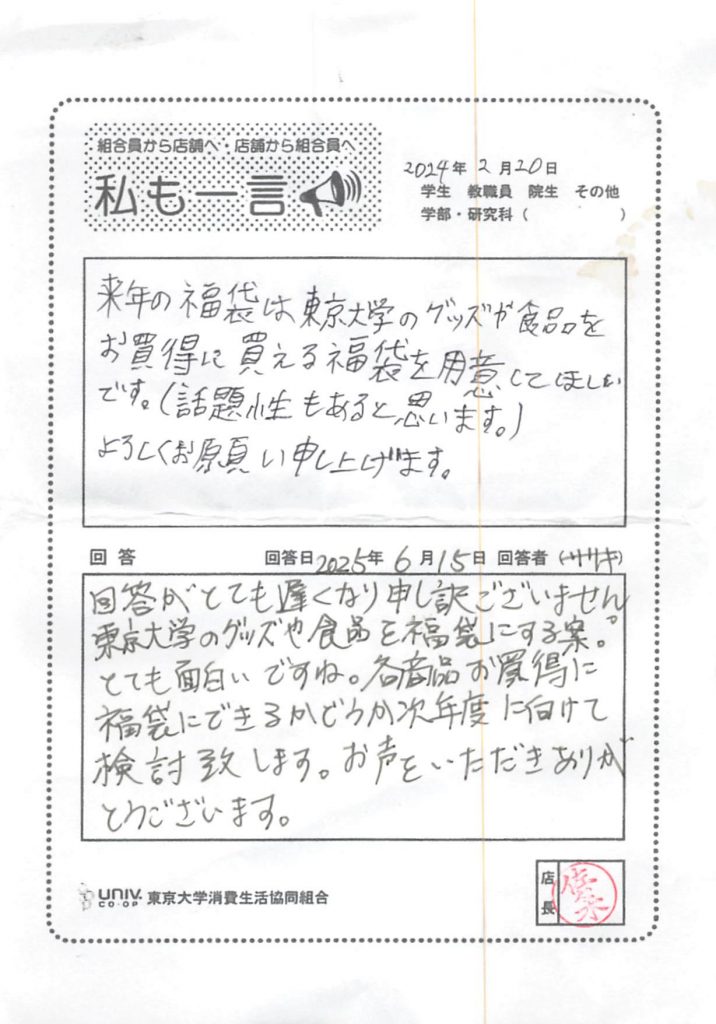 組合員から店舗へ・店舗から組合員へ
私も一言
2024年 2月20日
学生 教職員 院生 その他
学部・研究科( )
来年の福袋は東京大学のグッズや食品を
お買得に買える福袋を用意してほしい
です。(話題性もあると思います。)
よろしくお願い申し上げます。
回答 回答日 2025年 6月15日 回答者 (ササキ)
回答がとても遅くなり申し訳ございません。
東京大学のグッズや食品を福袋にする案。
とても面白いですね。各商品お買得に
福袋にできるかどうか次年度に向けて
検討致します。お声をいただきありが
とうございます。
UNIV. CO-OP 東京大学消費生活協同組合
店長